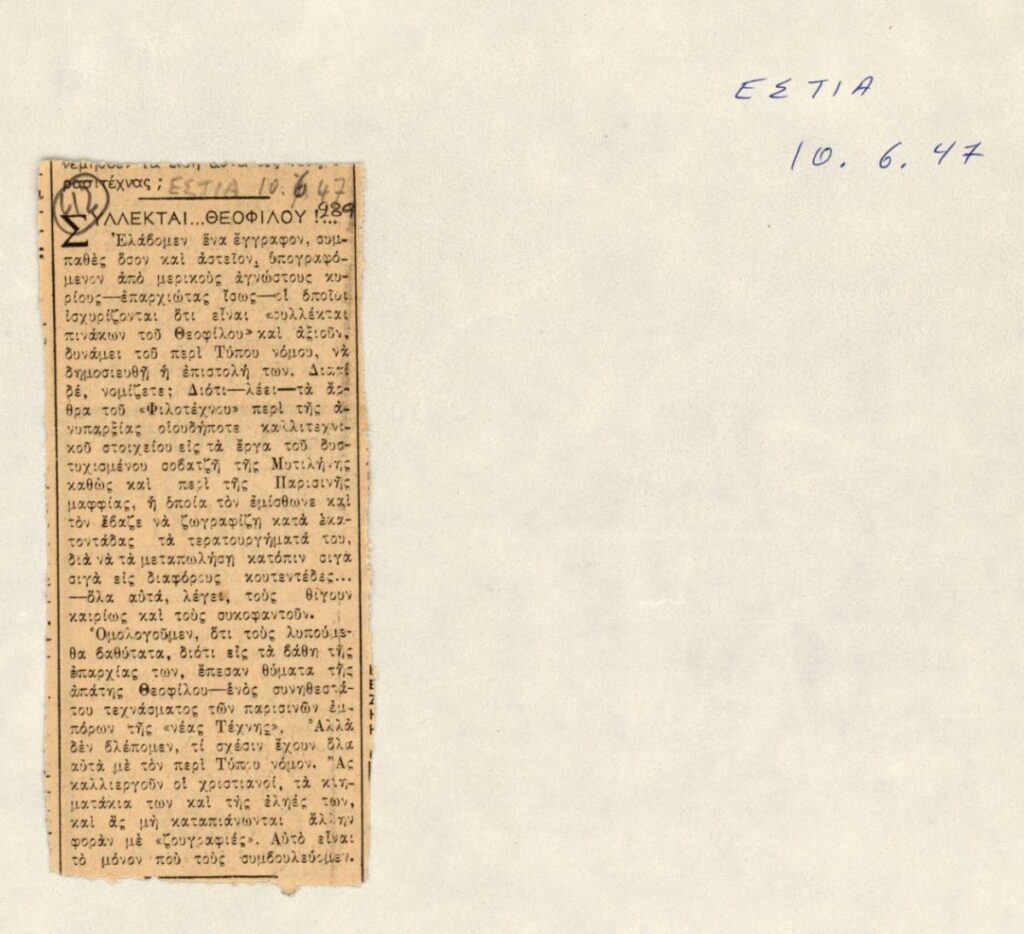 ΕΣΤΙΑ
10. 6. 47
ρασιτέχνας ; ΕΣΤΙΑ 10. 6 47
989
ΣΥΛΛΕΚΤΑΙ...ΘΕΟΦΙΛΟΥ !...
Ἐλάβομεν ἕνα ἔγγραφον, συμ-
παθὲς ὅσον καὶ ἀστεῖον, ὑπογραφό-
μενον ἀπὸ μερικοὺς ἀγνώστους κυ-
ρίους—ἐπαρχιώτας ἴσως—οἱ ὁποῖοι
ἰσχυρίζονται ὅτι εἶναι «συλλέκται
πινάκων τοῦ Θεοφίλου» καὶ ἀξιοῦν,
δυνάμει τοῦ περὶ Τύπου νόμου, νὰ
δημοσιευθῇ ἡ ἐπιστολή των. Διατί
δέ, νομίζετε; Διότι—λέει—τὰ ἄρ-
θρα τοῦ «Φιλοτέχνου» περὶ τῆς ἀ-
νυπαρξίας οἱουδήποτε καλλιτεχνι-
κοῦ στοιχείου εἰς τὰ ἔργα τοῦ δυσ-
τυχισμένου σοβατζῆ τῆς Μυτιλήνης
καθὼς καὶ περὶ τῆς Παρισινῆς
μαφφίας, ἡ ὁποία τὸν ἐμίσθωνε καὶ
τὸν ἔβαζε νὰ ζωγραφίζῃ κατὰ ἑκα-
τοντάδας τὰ τερατουργήματά του,
διὰ νὰ τὰ μεταπωλήσῃ κατόπιν σιγα
σιγὰ εἰς διαφόρους κουτεντέδες...
—ὅλα αὐτά, λέγει, τοὺς θίγουν
καιρίως καὶ τοὺς συκοφαντοῦν.
Ὁμολογοῦμεν, ὅτι τοὺς λυπούμε-
θα βαθύτατα, διότι εἰς τὰ βάθη τῆς
ἐπαρχίας των, ἔπεσαν θύματα τῆς
ἀπάτης Θεοφίλου—ἑνὸς συνηθεστά-
του τεχνάσματος τῶν παρισινῶν ἐμ-
πόρων τῆς «νέας Τέχνης». Ἀλλὰ
δὲν βλέπομεν, τί σχέσιν ἔχουν ὅλα
αὐτὰ μὲ τὸν περὶ Τύπου νόμον. Ἂς
καλλιεργοῦν οἱ χριστιανοί, τὰ κτη-
ματάκια των καὶ τῆς ἐληές των,
καὶ ἂς μὴ καταπιάνωνται ἄλλην
φορὰν μὲ «ζουγραφιές». Αὐτὸ εἶναι
τὸ μόνον ποὺ τοὺς συμβουλεύομεν.